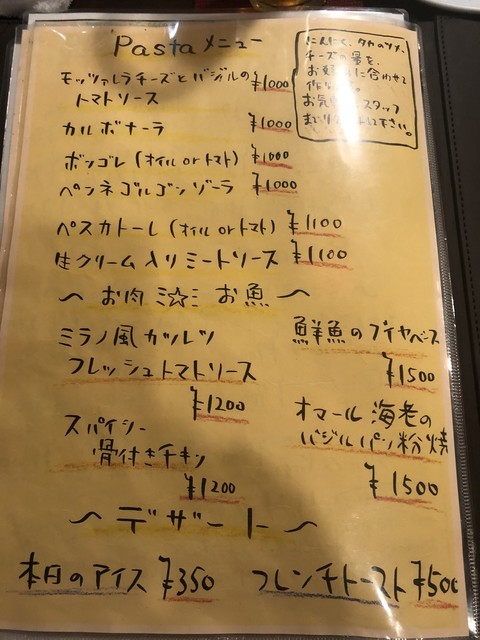 Pasta メニュー
にんにく、タカのツメ、
チーズの量を、
お好みに合わせて
作
お気 スタッフ
まで 下さい。
モッツァレラチーズとバジルの ¥1000
トマトソース
カルボナーラ ¥1000
ボンゴレ (オイル or トマト) ¥1000
ペンネゴルゴンゾーラ ¥1000
ペスカトーレ (オイル or トマト) ¥1100
生クリーム入りミートソース ¥1100
〜 お肉 ミ☆ミ お魚 〜
ミラノ風カツレツ
フレッシュトマトソース
¥1200
スパイシー
骨付きチキン
¥1200
鮮魚のブイヤベース
¥1500
オマール海老の
バジルパン粉焼
¥1500
〜 デザート 〜
本日のアイス ¥350 フレンチトースト ¥500